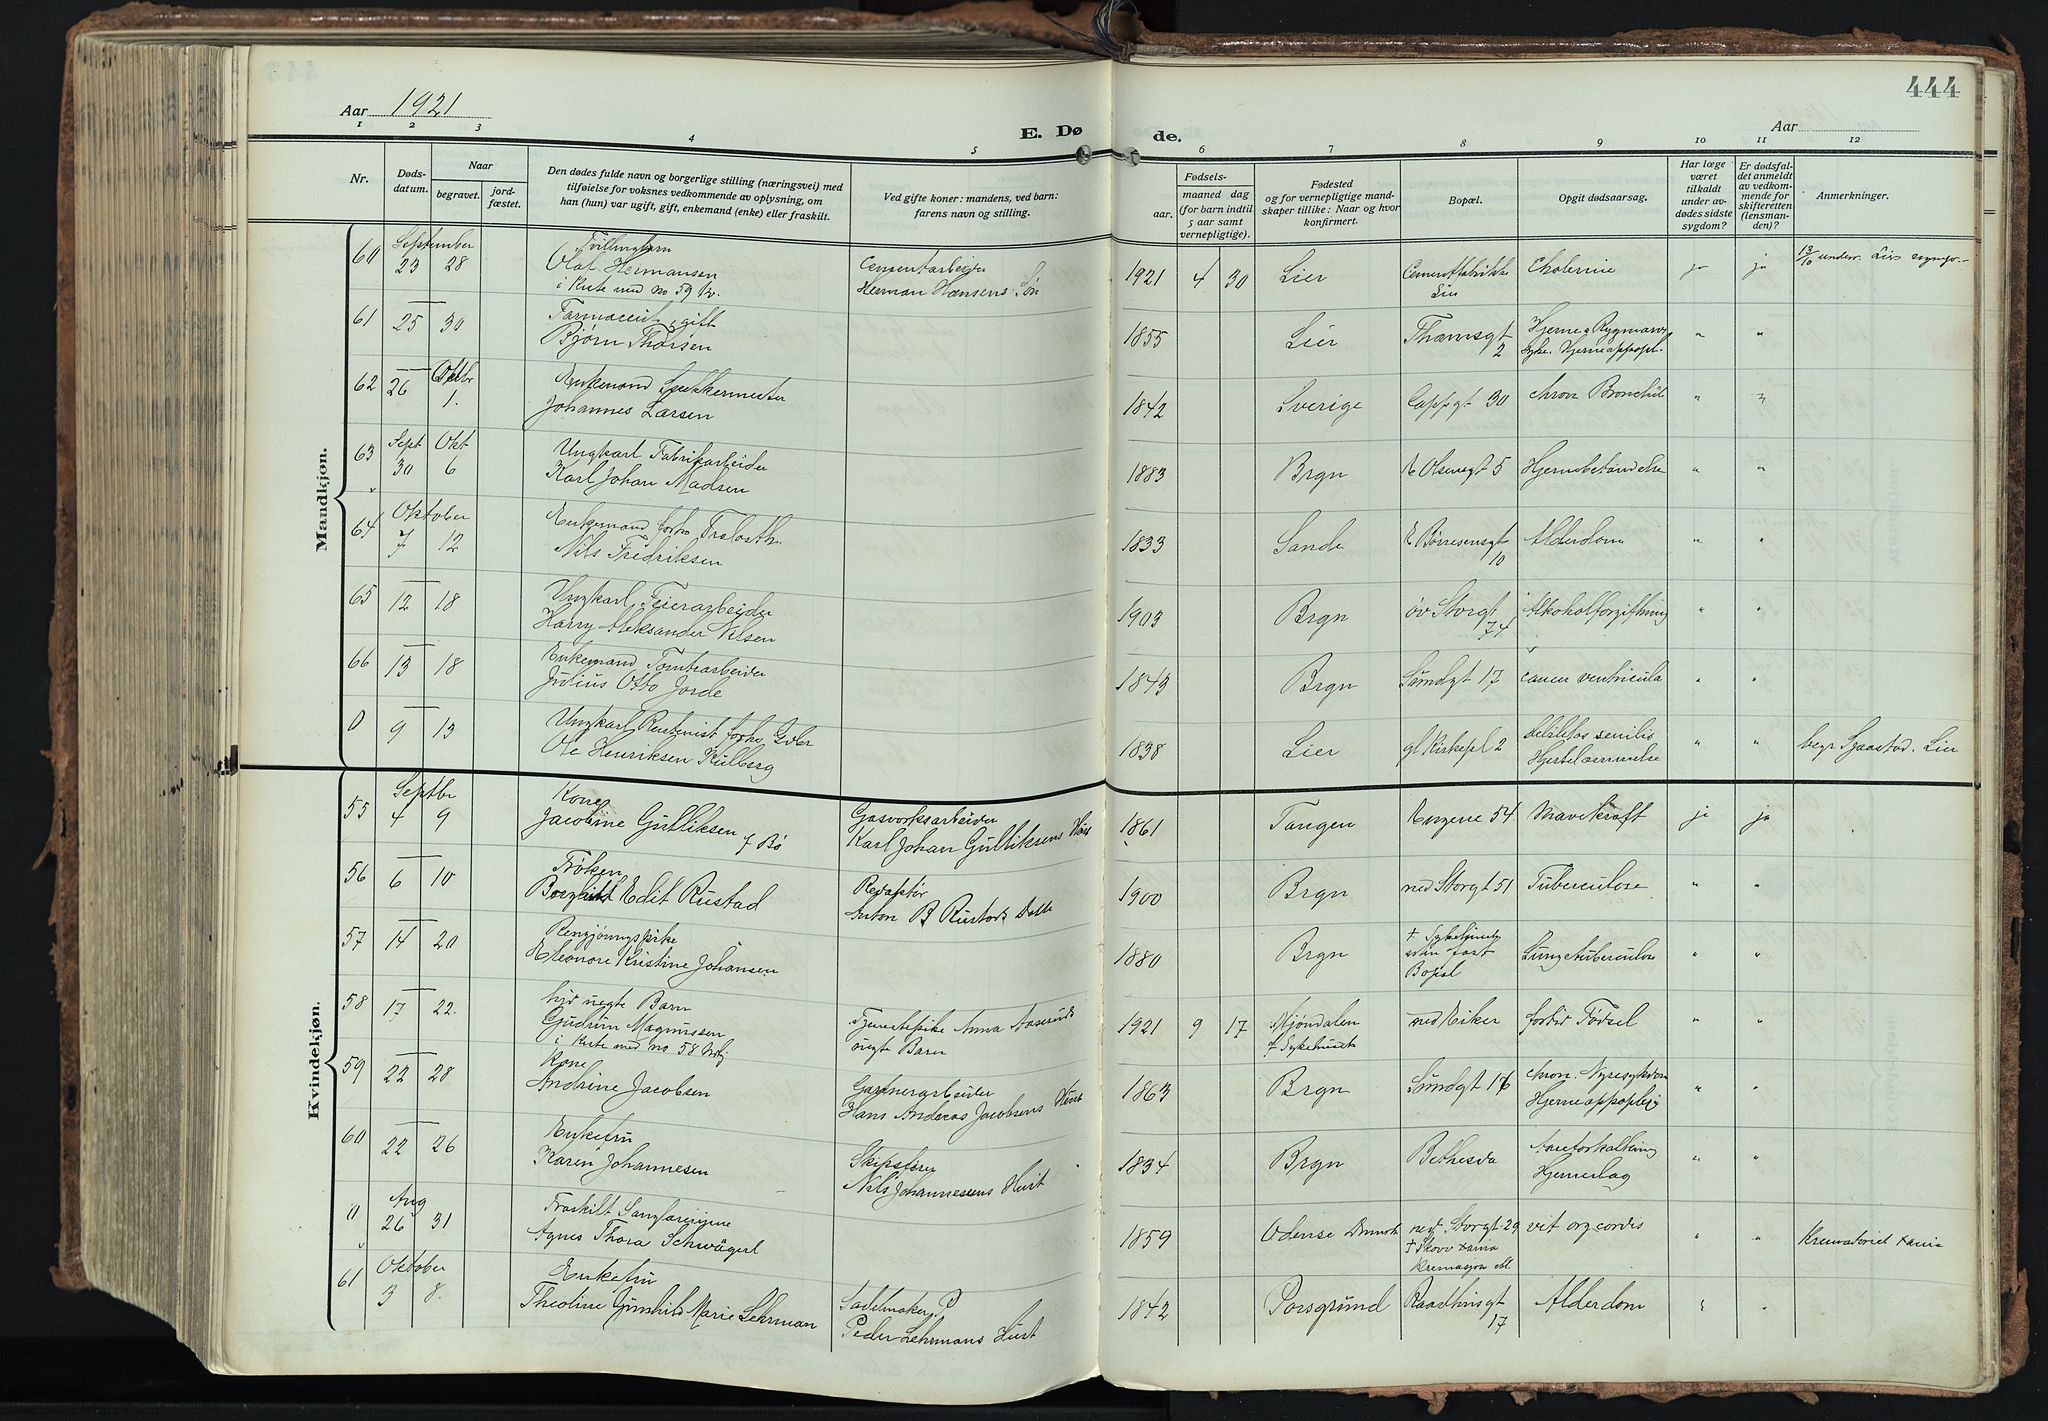 444
Aar 1921
E. Dø de.
Aar
1 2 3 4 5 6 7 8 9 10 11 12
Nr.
Døds-
datum.
Naar
begravet.
jord-
fæstet.
Den dødes fulde navn og borgerlige stilling (næringsvei) med
tilføielse for voksnes vedkommende av oplysning, om
han (hun) var ugift, gift, enkemand (enke) eller fraskilt.
Ved gifte koner: mandens, ved barn:
farens navn og stilling.
Fødsels-
aar.
maaned dag
(for barn indtil
5 aar samt
vernepligtige).
Fødested
og for vernepligtige mand-
skaper tillike: Naar og hvor
konfirmert.
Bopæl.
Opgit dødsaarsag.
Har læge
været
tilkaldt
under av-
dødes sidste
sygdom?
Er dødsfal-
det anmeldt
av vedkom-
mende for
skifteretten
(lensman-
den)?
Anmerkninger.
Mandkjøn.
September Tvillingbarn
60 23 28 Olaf Hermansen Cementarbeider 1921 4 30 Lier Cementfabrikke Cholerine ja ja 13/10 underr. Liers
i Kiste med no 59 Herman Hansens Søn Lier
61 25 30 Farmaceut, gift
Bjørn Thorsen 1855 Lier Thamsgt Hjerne & Rygmarv " "
2 syke. Hjerneappopl.
62 26 Oktbr Enkemand Snekkermester
1. Johannes Larsen 1842 Sverige Cappgt 30 chron Bronchit " "
63 Sept Okt Ungkarl Fabrikarbeider
30 6 Karl Johan Madsen 1883 Brgn E Olsensgt 5 Hjernebetændelse " "
64 Oktober Enkemand forhv
7 12 Nils Fredriksen 1833 Sande E Børresensgt Alderdom " "
10
65 12 18 Ungkarl Feierarbeider
Harry Aleksander Nilsen 1903 Brgn øv Storgt Alkoholforgiftning " "
74
66 13 18 Enkemand Tomtearbeider
Julius Otto Jorde 1843 Brgn Sundgt 17 cancer ventricula " "
0 9 13 Ungkarl Rentenist forhv
Ole Henriksen Kulberg 1838 Lier gl Kirkepl 2 debilitas senilis " " begr Lier
Hjertelammelse
Kvindekjøn.
Septbr Kone
55 4 9 Jacobine Gulliksen Gasverksarbeider 1861 Tangen Engene 54 Mavekræft ja ja
f Bø Karl Johan Gulliksens Hust
56 6 10 Frøken Redaktør
Borghild Edit Rustad Anton B Rustads Datt 1900 Brgn ned Storgt 51 Tuberculose " "
57 14 20 Rengjøringspike
Eleonore Kristine Johansen 1880 Brgn † Sykehuset Lungetuberculose " "
uten fast
Bopæl
58 17 22. uegte Barn
Gudrun Magnussen Tjenestepike Anna Aaseruds 1921 9 17 Mjøndalen ned Eiker fortid Fødsel " "
i Kiste med no 58 uegte Barn † Sykehuset
59 22 28 Kone
Andrine Jacobsen Gartnerarbeider 1863 Brgn Sundgt 16 chron. Nyresykdom " "
Hans Andreas Jacobsens Hust Hjerneappoplexi
60 22 26 Enkefru
Karen Johannesen Skipsfører 1834 Brgn Bethesda Aareforkalkning " "
Nils Johannesens Hust Hjerneslag
0 Aug Fraskilt Sanglærerinne
26 31 Agnes Thora Schwägerl 1859 Odense Danmark ned Storgt 29 vit org cordis " " Krematoriet Xania
† Skovv Xania
61 Oktober Enkefru
3 8. Theoline Gunhild Marie Lehrman Sadelmaker 1842 Porsgrund Raadhusgt Alderdom " "
Peder Lehrmans Hust 17